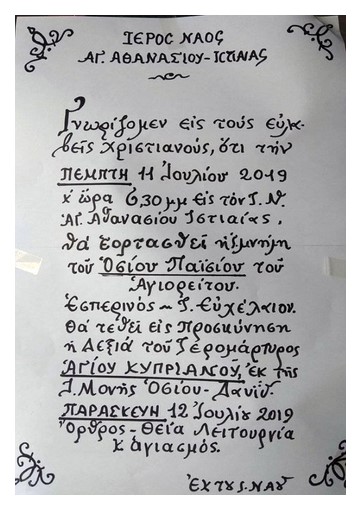 ΙΕΡΟΣ ΝΑΟΣ
ΑΓ. ΑΘΑΝΑΣΙΟΥ - ΙΣΤΙΑΙΑΣ
Γνωρίζομεν εἰς τούς εὐλα-
βεῖς χριστιανούς, ὅτι τήν
ΠΕΜΠΤΗ 11 Ἰουλίου 2019
κ ὥρα 6,30 μμ εἰς τόν Ἱ. Ν.
Ἁγ. Ἀθανασίου Ἱστιαίας,
θά ἑορτασθεῖ ἡ μνήμη
τοῦ Ὁσίου Παϊσίου τοῦ
Ἁγιορείτου.
Ἑσπερινός ~ Ἱ. Εὐχέλαιον.
Θά τεθεῖ εἰς προσκύνηση
ἡ Δεξιά τοῦ Ἱερομάρτυρος
ἉΓΙΟΥ ΚΥΠΡΙΑΝΟΥ, ἐκ τῆς
Ἱ. Μονῆς Ὁσίου - Δαυΐδ.
ΠΑΡΑΣΚΕΥΗ 12 Ἰουλίου 2019
Ὄρθρος - Θεία Λειτουργία
κ ἁγιασμός.
ἘΚ ΤΟΥ Ἱ. ΝΑΟΥ